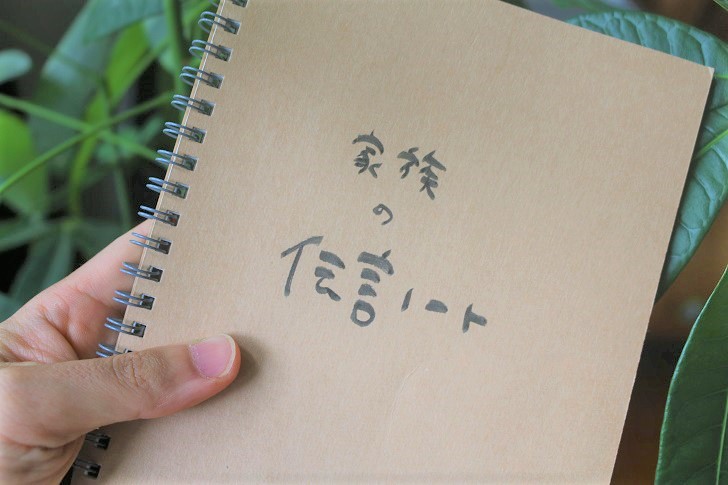 家族
の
伝言ノート